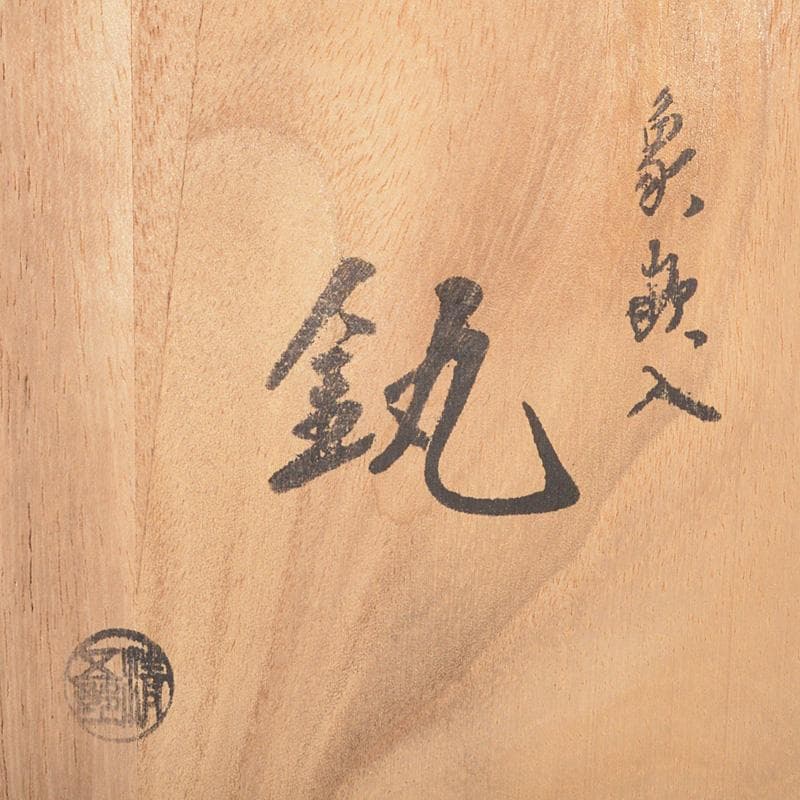 象嵌入
釻